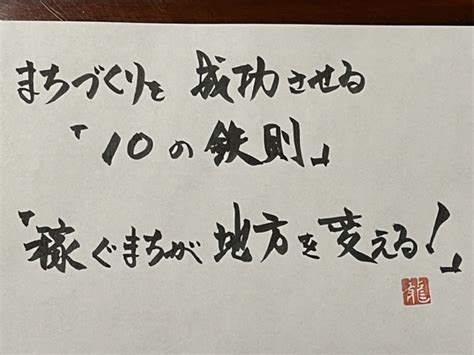 まちづくりを 成功させる
「10の鉄則」
「稼ぐまちが 地方を変える!」
龍